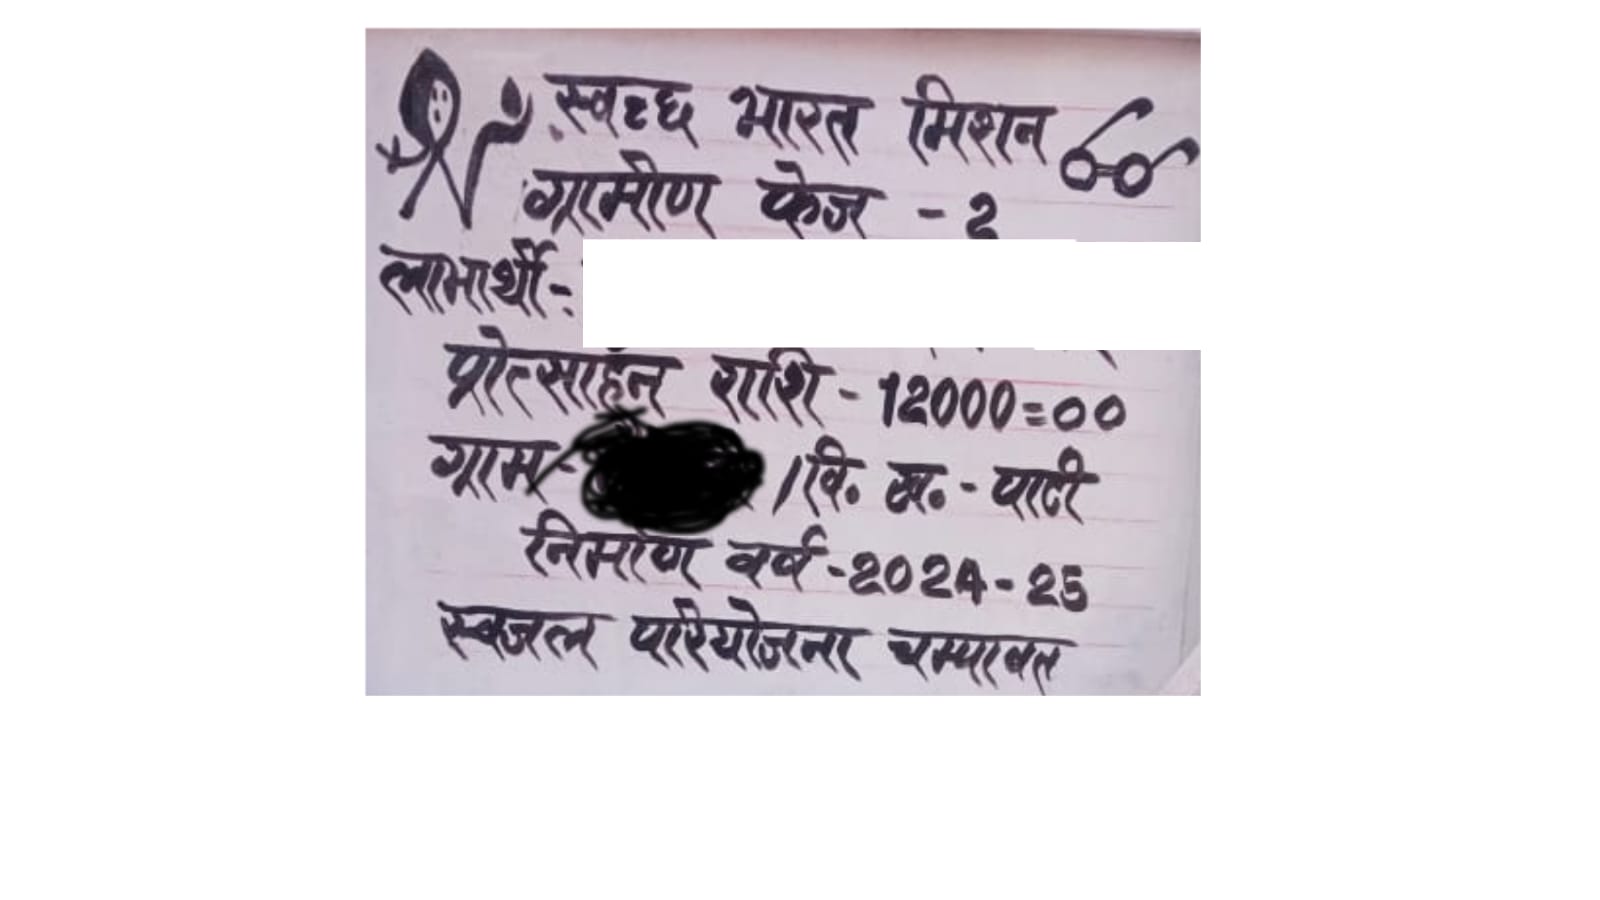 स्वच्छ भारत मिशन
ग्रामीण फेज - 2
लाभार्थी-
प्रोत्साहन राशि - 12000=00
ग्राम- / वि. ख. - पाटी
निर्माण वर्ष - 2024 - 25
स्वजल परियोजना चम्पावत